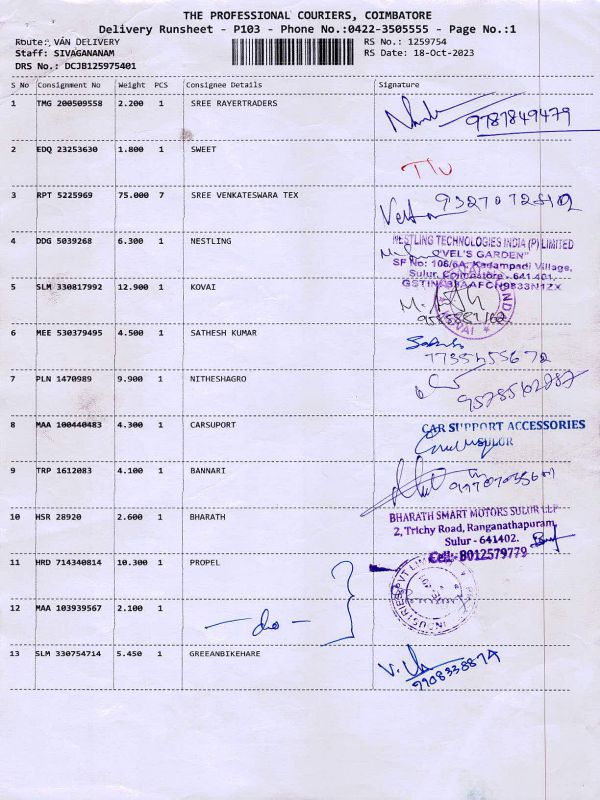 THE PROFESSIONAL COURIERS, COIMBATORE
Delivery Runsheet - P103 - Phone No.:0422-3505555 - Page No.:1
Route: VAN DELIVERY
Staff: SIVAGANANAM
DRS No.: DCJB125975401
RS No.: 1259754
RS Date: 18-Oct-2023
S No Consignment No Weight PCS Consignee Details Signature
1 TMG 200509558 2.200 1 SREE RAYERTRADERS
9787849479
2 EDQ 23253630 1.800 1 SWEET
3 RPT 5225969 75.000 7 SREE VENKATESWARA TEX
4 DDG 5039268 6.300 1 NESTLING
NESTLING TECHNOLOGIES INDIA (P) LIMITED
"VEL'S GARDEN"
SF No: 106/6A, Kadampadi Village,
Sulur, Coimbatore - 641 401.
5 SLM 330817992 12.900 1 KOVAI
KOVAI
6 MEE 530379495 4.500 1 SATHESH KUMAR
7735455672
7 PLN 1470989 9.900 1 NITHESHAGRO
8 MAA 100440483 4.300 1 CARSUPORT
CAR SUPPORT ACCESSORIES
SULUR
9 TRP 1612083 4.100 1 BANNARI
10 HSR 28920 2.600 1 BHARATH
BHARATH SMART MOTORS SULUR LLP
2, Trichy Road, Ranganathapuram,
Sulur - 641402.
Cell:- 8012579779
11 HRD 714340814 10.300 1 PROPEL
INDUSTRIES PVT LIMITED
12 MAA 103939567 2.100 1
- do -
13 SLM 330754714 5.450 1 GREEANBIKEHARE